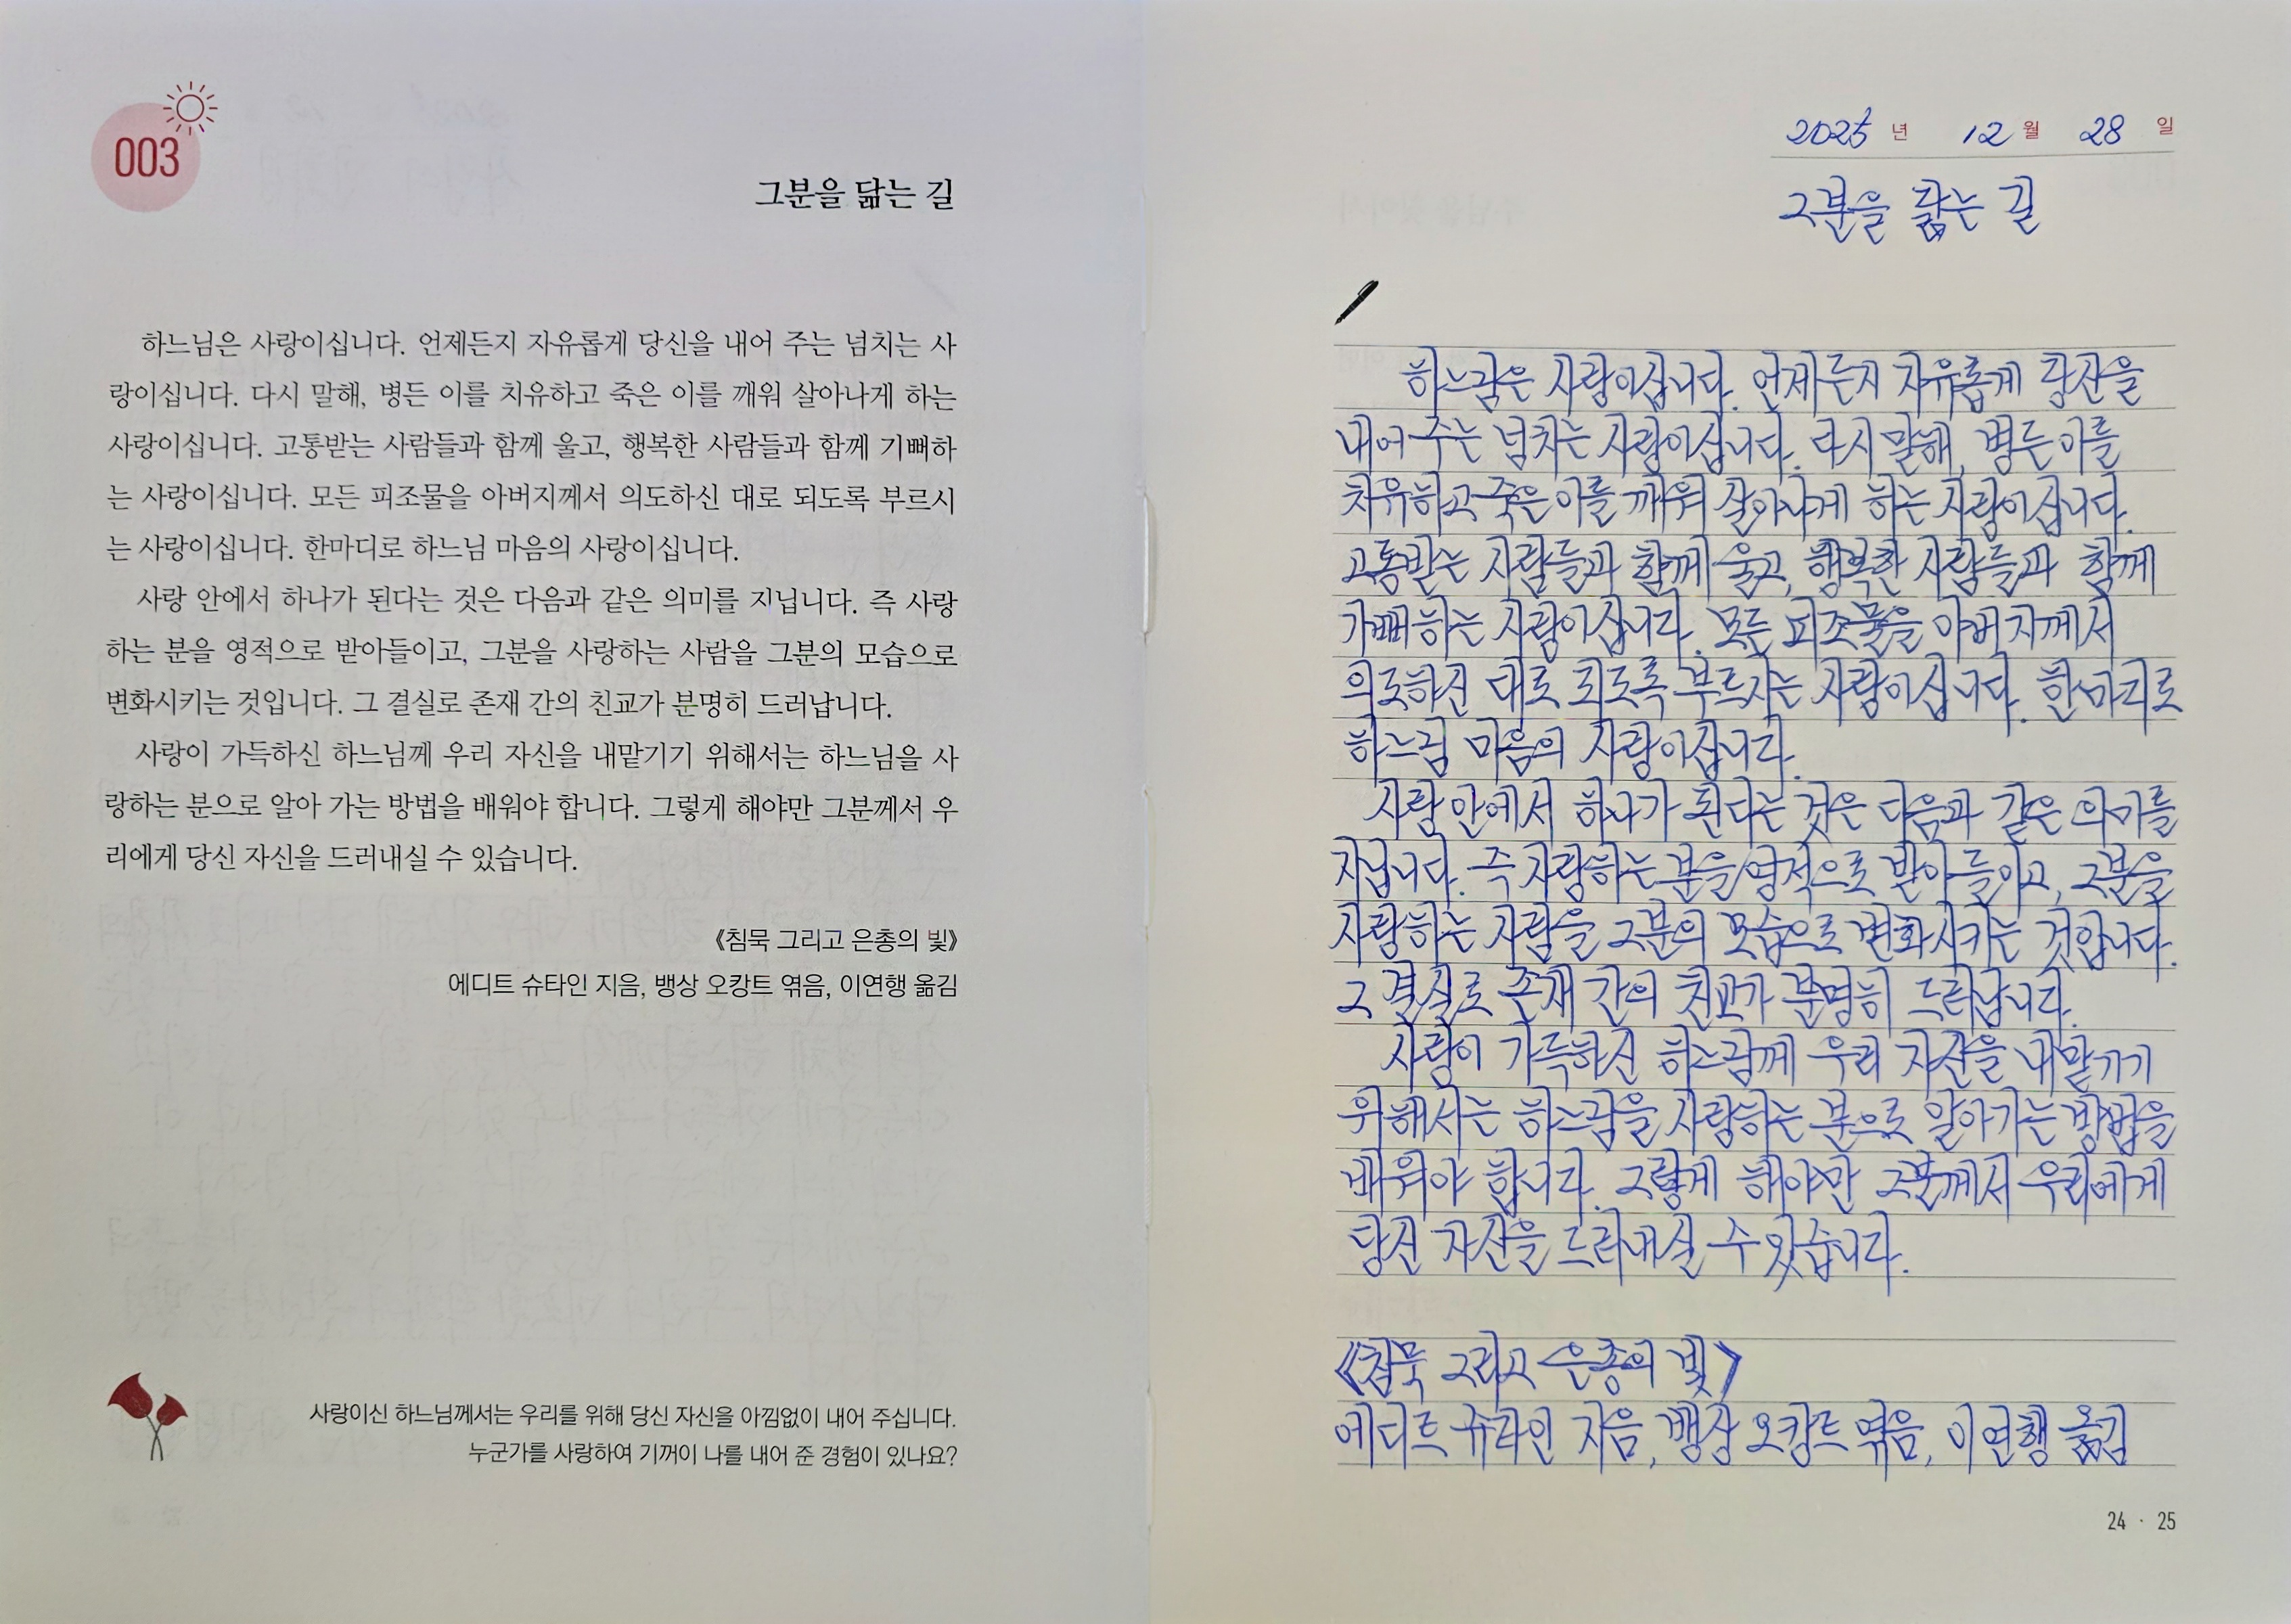 003
그분을 닮는 길
하느님은 사랑이십니다. 언제든지 자유롭게 당신을 내어 주는 넘치는 사
랑이십니다. 다시 말해, 병든 이를 치유하고 죽은 이를 깨워 살아나게 하는
사랑이십니다. 고통받는 사람들과 함께 울고, 행복한 사람들과 함께 기뻐하
는 사랑이십니다. 모든 피조물을 아버지께서 의도하신 대로 되도록 부르시
는 사랑이십니다. 한마디로 하느님 마음의 사랑이십니다.
사랑 안에서 하나가 된다는 것은 다음과 같은 의미를 지닙니다. 즉 사랑
하는 분을 영적으로 받아들이고, 그분을 사랑하는 사람을 그분의 모습으로
변화시키는 것입니다. 그 결실로 존재 간의 친교가 분명히 드러납니다.
사랑이 가득하신 하느님께 우리 자신을 내맡기기 위해서는 하느님을 사
랑하는 분으로 알아 가는 방법을 배워야 합니다. 그렇게 해야만 그분께서 우
리에게 당신 자신을 드러내실 수 있습니다.
《침묵 그리고 은총의 빛》
에디트 슈타인 지음, 뱅상 오캉트 엮음, 이연행 옮김
사랑이신 하느님께서는 우리를 위해 당신 자신을 아낌없이 내어 주십니다.
누군가를 사랑하여 기꺼이 나를 내어 준 경험이 있나요?
2025 년 12 월 28 일
그분을 닮는 길
하느님은 사랑이십니다. 언제든지 자유롭게 당신을
내어 주는 넘치는 사랑이십니다. 다시 말해, 병든 이를
치유하고 죽은 이를 깨워 살아나게 하는 사랑이십니다.
고통받는 사람들과 함께 울고, 행복한 사람들과 함께
기뻐하는 사랑이십니다. 모든 피조물을 아버지께서
의도하신 대로 되도록 부르시는 사랑이십니다. 한마디로
하느님 마음의 사랑이십니다.
사랑 안에서 하나가 된다는 것은 다음과 같은 의미를
지닙니다. 즉 사랑하는 분을 영적으로 받아들이고, 그분을
사랑하는 사람을 그분의 모습으로 변화시키는 것입니다.
그 결실로 존재 간의 친교가 분명히 드러납니다.
사랑이 가득하신 하느님께 우리 자신을 내맡기기
위해서는 하느님을 사랑하는 분으로 알아가는 방법을
배워야 합니다. 그렇게 해야만 그분께서 우리에게
당신 자신을 드러내실 수 있습니다.
《침묵 그리고 은총의 빛》
에디트 슈타인 지음, 뱅상 오캉트 엮음, 이연행 옮김
24 · 25